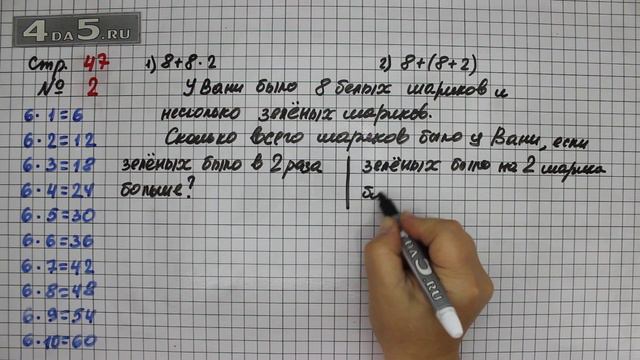 4DA5.RU
Стр. 47
№ 2
6·1=6
6·2=12
6·3=18
6·4=24
6·5=30
6·6=36
6·7=42
6·8=48
6·9=54
6·10=60
1) 8+8·2
2) 8+(8+2)
У Вани было 8 белых шариков и
несколько зелёных шариков.
Сколько всего шариков было у Вани, если
зелёных было в 2 раза
больше?
зелёных было на 2 шарика
бо
4DA5.RU